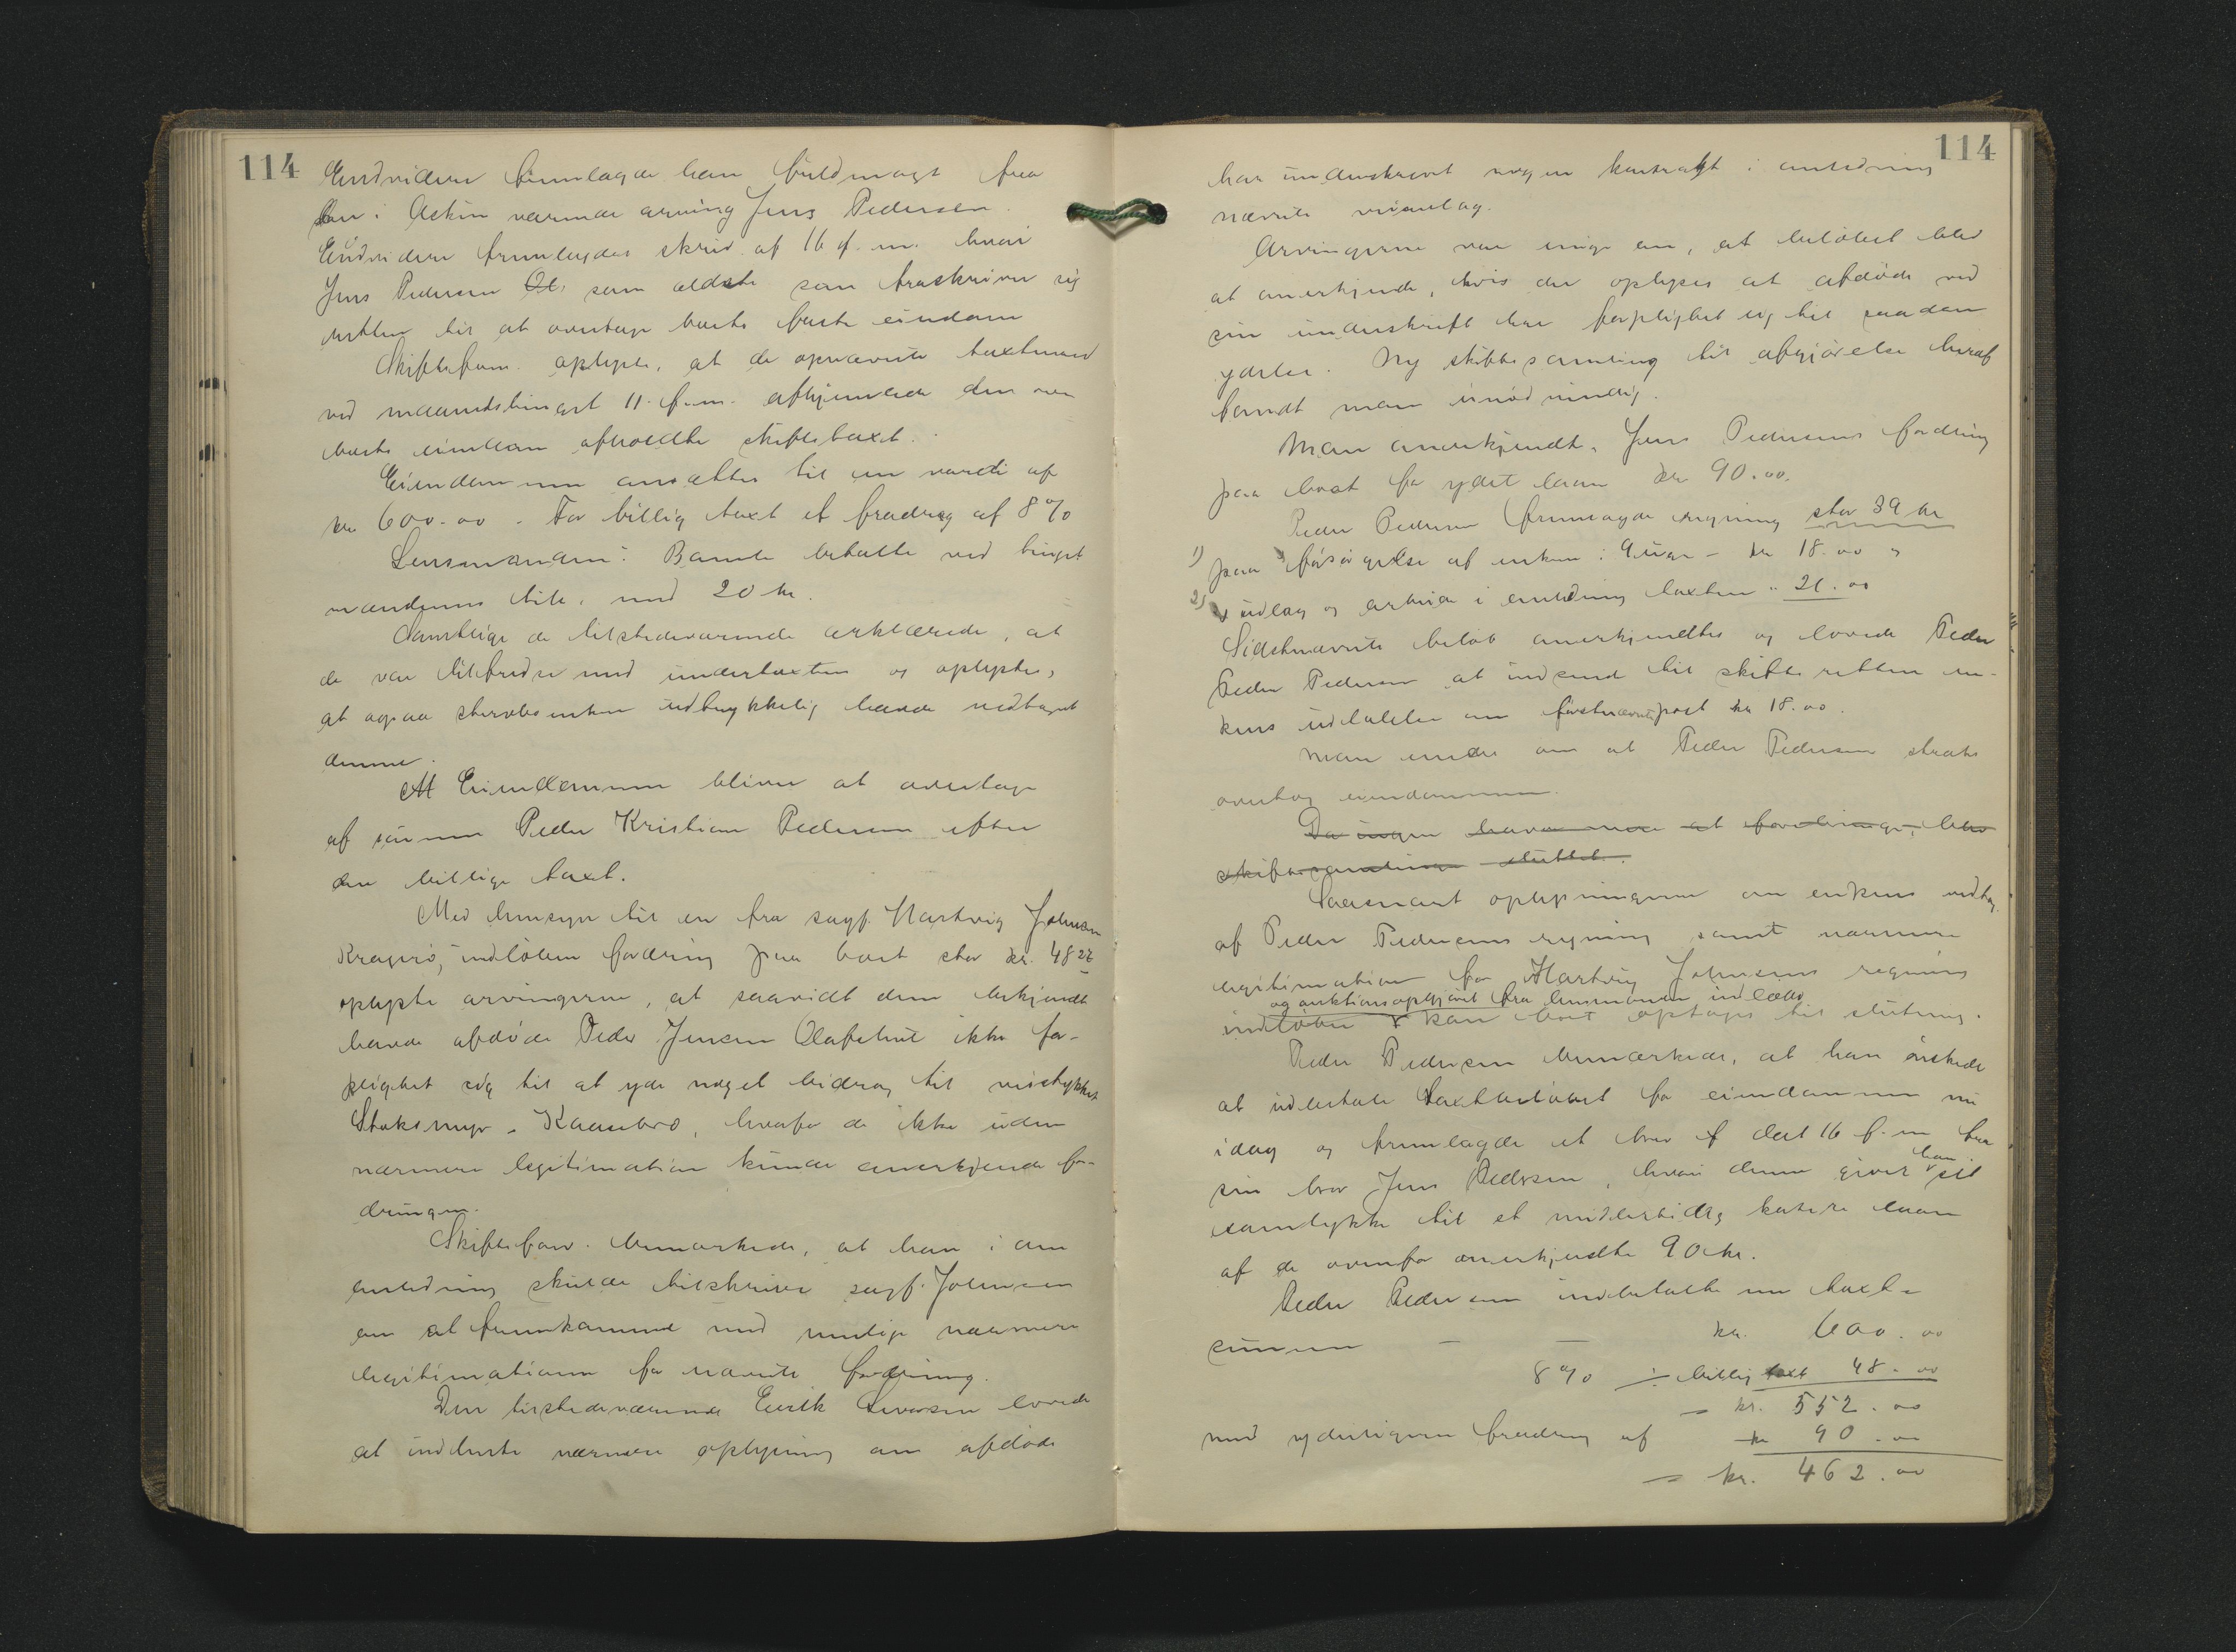 114
Endvidere fremlagde han fuldmagt fra
den i Askim værende arving Jens Pedersen.
Endvidere fremlagdes skriv. af 16 d. m. hvori
Jens Pedersen Ol. som ældste søn fraskriver sig
retten til at overtage boets faste eiendom
Skifteforv. oplyste, at de opnævnte taxtmænd
ved maanedstinget 11. f. m. afhjemlede den over
boets eiendom afholdte skiftetaxt.
Eiendommen ansættes til en værdi af
kr 600.00. For billig taxt et fradrag af 8 %
Lensmanden i Bamle betalte ved tinget
mændenes tilk. med 20 kr.
Samtlige de tilstedeværende erklærede, at
de var tilfredse med undertaxten og oplyste,
at ogsaa stervboenken udtrykkelig havde vedtaget
denne.
At Eiendommen bliver at overtage
af sønnen Peder Kristian Pedersen efter
den billige taxt.
Med hensyn til en fra sagf. Hartvig Johnsen
Kragerø, indløben fordring paa boet stor kr. 48 27
oplyste arvingerne, at saavidt dem bekjendt
havde afdøde Peder Jensen Olafstul ikke for-
pligtet sig til at yde noget bidrag til veistykket
Stoksmyr - Kaasebro, hvorfor de ikke uden
nærmere legitimation kunde anerkjende for-
dringen.
Skifteforv. bemærkede, at han i den
anledning skulde tilskrive sagf. Johnsen
om at fremkomme med mulige nærmere
legitimationer for nævnte fordring.
Den tilstedeværende Eivik Siversen lovede
at indhente nærmere oplysning om afdøde
114
har underskrevet nogen kontrakt i anledning
nævnte veianlæg.
Arvingerne var enige om, at beløbet blev
at anerkjende, hvis der oplyses at afdøde ved
sin underskrift har forpligtet sig til saadan
ydelse. Ny skiftesamling til afgjørelse heraf
fandt man unødvendig.
Man anerkjendte Jens Pedersens fordring
paa boet for ydet laan kr 90.00.
Peder Pedersen fremlagde regning stor 39 kr
1) paa forsørgelse af enken i 9 uger - kr 18.00 og
2) udlæg og arbeide i anledning taxten " 21.00
Sidstnævnte beløb anerkjendtes og lovede Peder
Peder Pedersen at indsende til skifteretten en-
kens udtalelse om førstnævnte post kr 18.00.
Man enedes om at Peder Pedersen straks
overtog eiendommen.
Da ingen havde mere at forebringe, blev
skiftesamlingen sluttet.
Saasnart oplysningerne om enkens vedtag.
af Peder Pedersens regning samt nærmere
legitimation for Hartvig Johnsens regning
og auktionsopgjøret fra lensmanden indløbe
indløber kan boet optages til slutning.
Peder Pedersen bemærkede, at han ønskede
at udbetale taxtbeløbet for eiendommen nu
idag og fremlagde et brev af dat 16 f. m. fra
sin bror Jens Pedersen, hvori denne giver ham sit
samtykke til et midlertidig laan
af de ovenfor anerkjendte 90 kr.
Peder Pedersen indbetalte nu taxt-
summen — — kr. 600.00
8 % ÷ billig taxt 48.00
— kr. 552.00
med yderligere fradrag af kr 90.00
— kr. 462.00